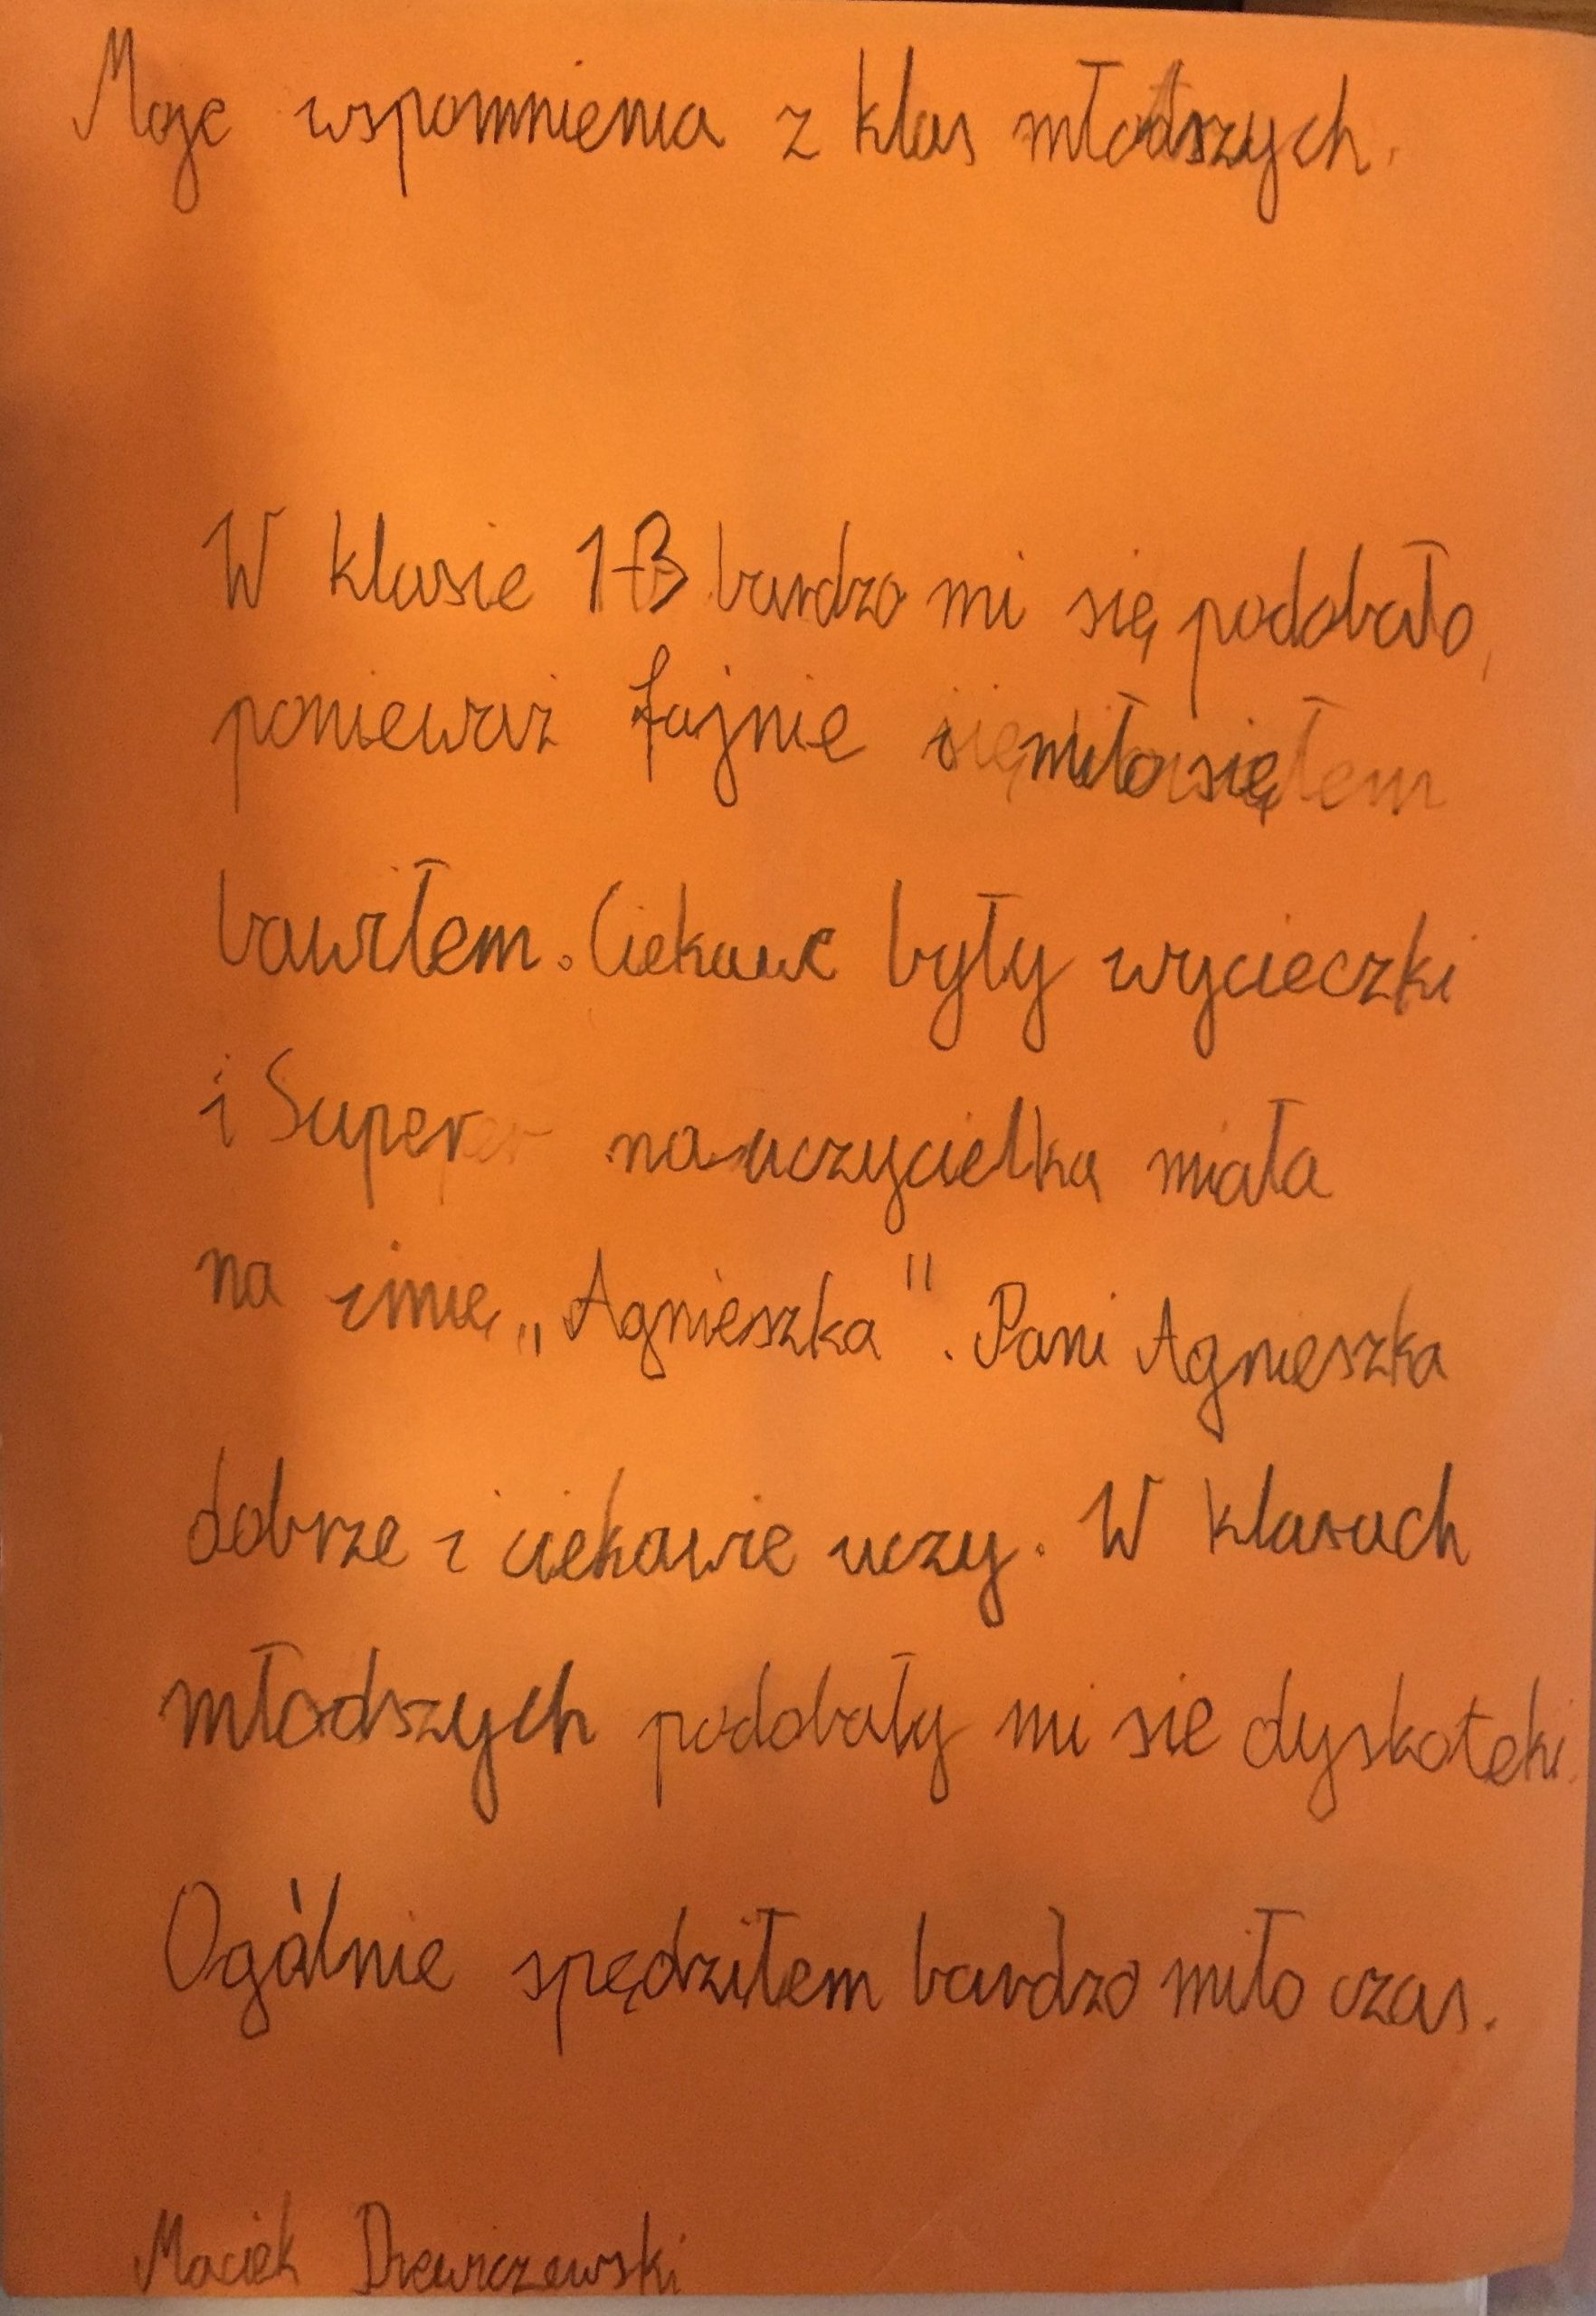 Moje wspomnienia z klas młodszych.
W klasie 1-B bardzo mi się podobało,
ponieważ fajnie i miło się
bawiłem. Ciekawe były wycieczki
i Super nauczycielka miała
na imię „Agnieszka". Pani Agnieszka
dobrze i ciekawie uczy. W klasach
młodszych podobały mi sie dyskoteki.
Ogólnie spędziłem bardzo miło czas.
Maciek Drewiczewski